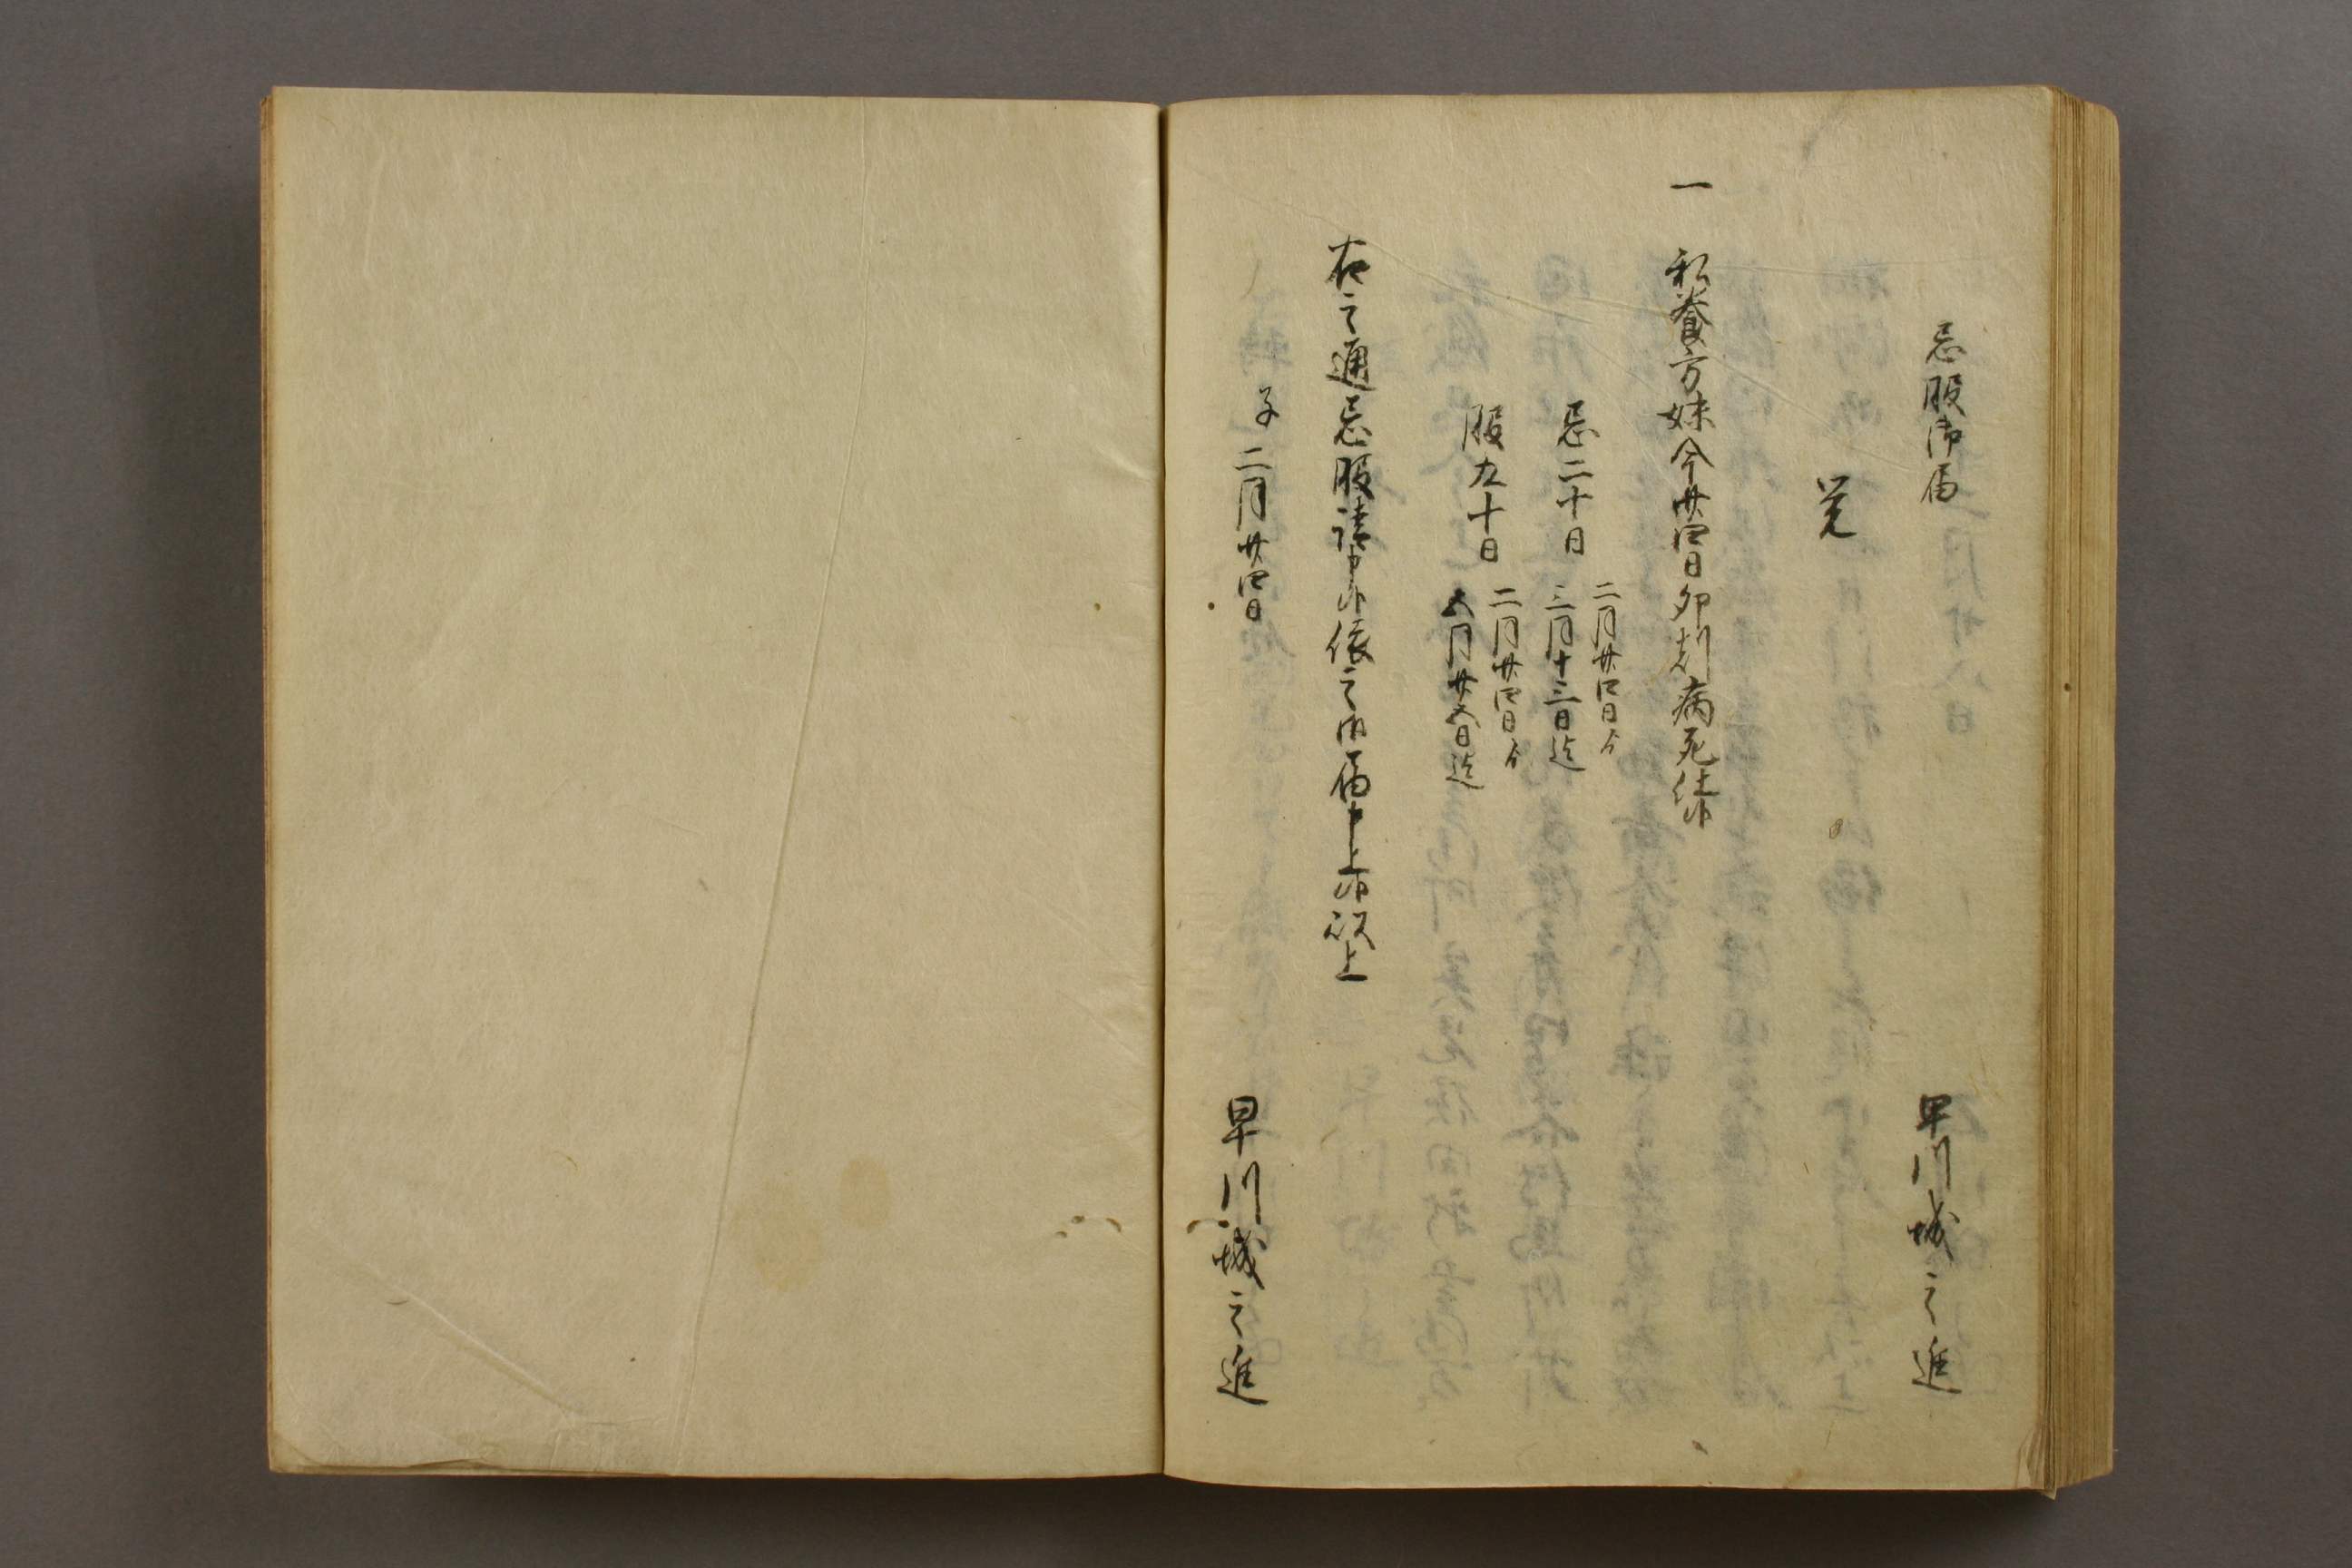 忌服御届
早川城之進
覚
一 私養方妹今廿四日卯刻病死仕候
忌二十日
二月廿四日ゟ
三月十三日迄
服九十日
二月廿四日ゟ
五月廿五日迄
右之通忌服請申候依之御届申上候以上
子二月廿四日
早川城之進